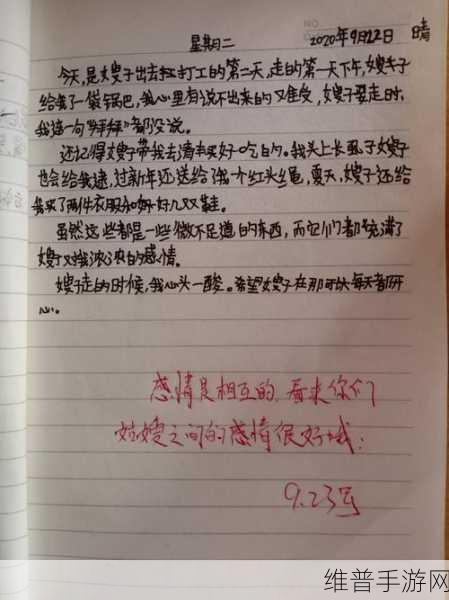 星期二 2020年9月22日 晴
今天,是嫂子出去打工的第二天,走的第一天下午,嫂子
给我了一袋锅巴,我心里有说不出来的难受,嫂子要走时,
我连一句“拜拜”都没说。
还记得嫂子带我去清丰买好吃的。我头上长虱子嫂子
也会给我逮,过新年还送给我个红头绳,夏天,嫂子还给
我买了两件衣服和好几双鞋。
虽然这些都是一些微不足道的东西,而它们都充满了
嫂子对我浓浓的感情。
嫂子走的时候,我心头一酸。希望嫂子在那可以每天都开
心。
感情是相互的,看来你们
姑嫂之间的感情很好哦!
9.23
维普手游网